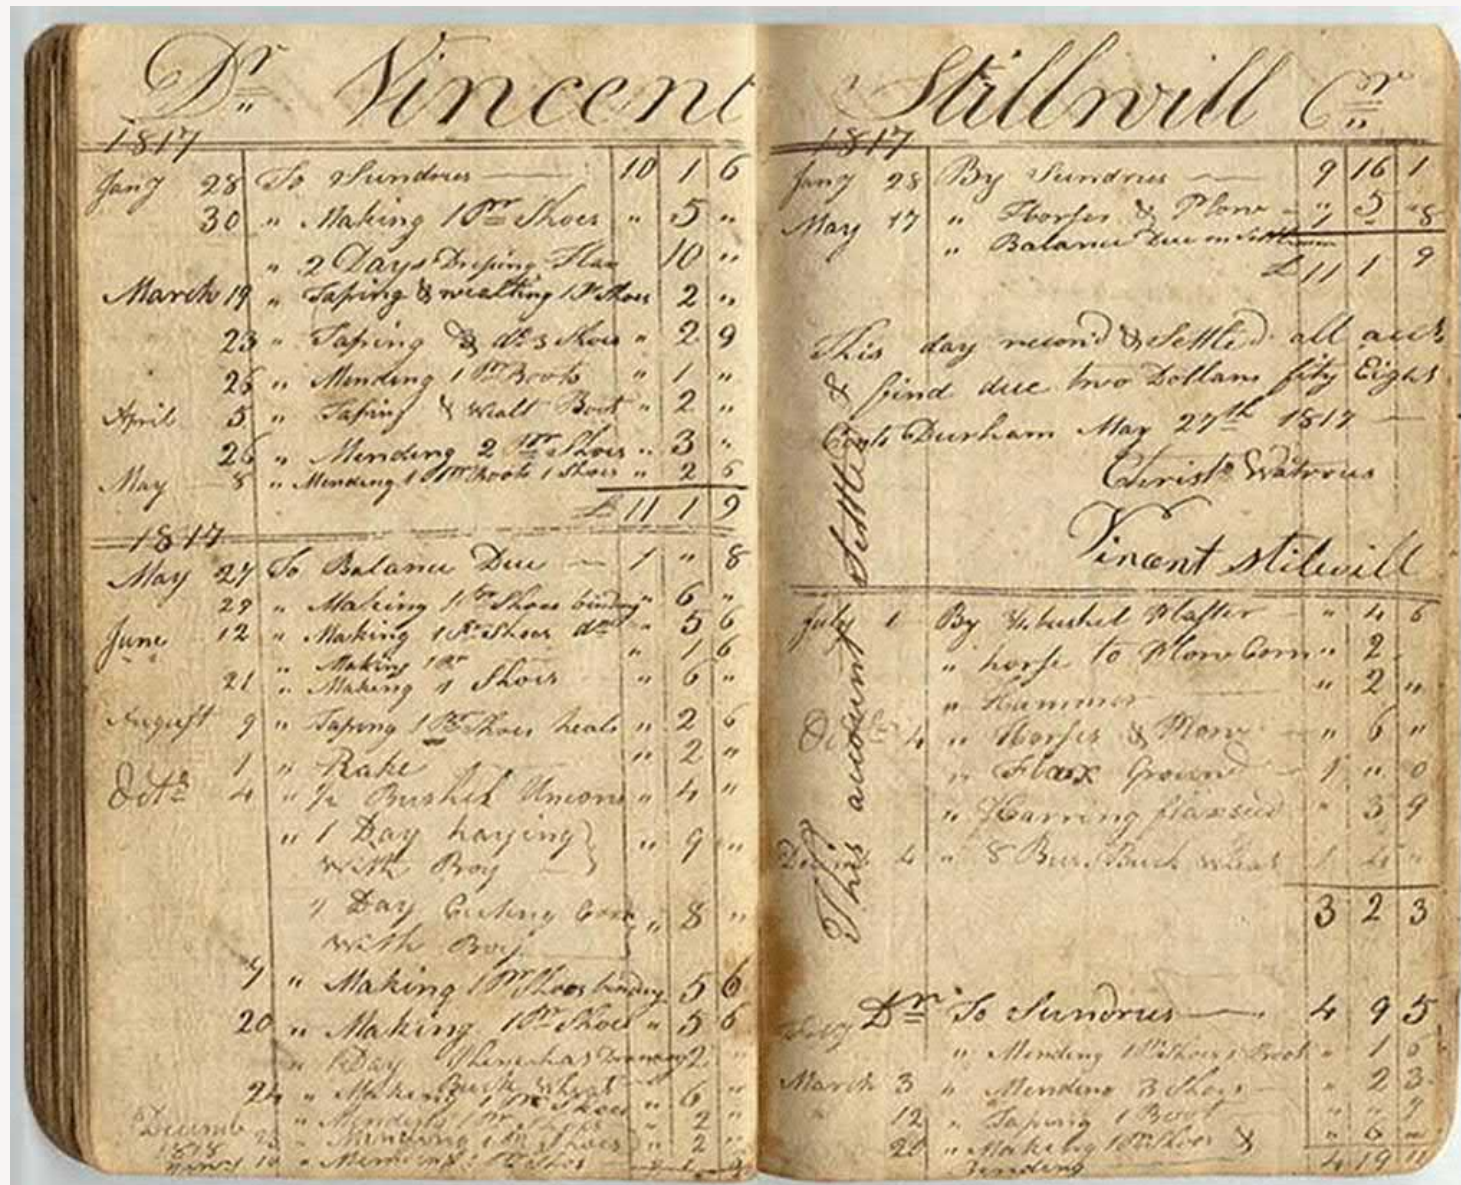 Dr Vincent Stillwill Cr
1817
Jany 28 To Sundries 10 1 6
30 " Making 1 Pr Shoes " 5 "
" 2 Days Dressing Flax 10 "
March 19 " Taping & wealting 1 Pr Shoes 2 "
23 " Taping & do 3 Shoes " 2 9
26 " Mending 1 Pr Boots " 1 "
April 5 " Taping & Wealt Boot " 2 "
26 " Mending 2 Pr Shoes " 3 "
May 8 " Mending 1 Pr Boots 1 Shoes " 2 6
£ 11 1 9
1817
May 27 To Balance Due 1 " 8
29 " Making 1 Pr Shoes binding " 6 "
June 12 " Making 1 Pr Shoes do " 5 6
" Making 1 Pr " 1 6
21 " Making 1 Shoes " 6 "
August 9 " Taping 1 Pr Shoes heals " 2 6
1 " Rake " 2 "
Octr 4 " 1/2 Bushel Unions " 4 "
" 1 Day haying
with Boy " 9 "
1 Day Cuting Corn
with Boy " 8 "
7 " Making 1 Pr Shoes binding 5 6
20 " Making 1 Pr Shoes " 5 6
" 1 Day 2 "
Buck Wheat
24 " Making 1 Pr Shoes " 6 "
Decemb " Mending 1 Pr Shoes " 2 "
" Mending 1 Pr Shoes " 2 "
1818
10 " Mending 1 Pr Shoe
1817
Jany 28 By Sundries 9 16 1
May 17 " Horses & Plow " 5 "
" Balance Due on Settlement 1 " 8
£ 11 1 9
This day recond & Settled all accts
& find due two Dollars fity Eight
Cents Durham May 27th 1817
Christr Watrous
Vincent Stilwill
This account Settled
July 1 By 1/2 bushel Plaster " 4 6
" horse to Plow Corn " 2
" Hammer " 2 "
Octbr 4 " Horses & Plow " 6 "
" Flax Ground 1 " 0
" Harring flaxseed " 3 9
4 " 8 Bus Buck wheat 1 4 "
3 2 3
Dr To Sundries 4 9 5
" Mending 1 Pr Shoes 1 Boot " 1 6
March 3 " Mending 3 Shoes " 2 3
12 " Taping 1 Boot
20 " Making 1 Pr Shoes & " 6 "
binding 4 19 11